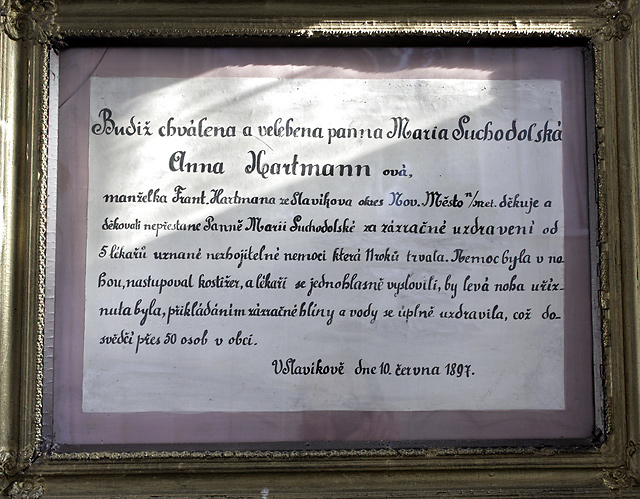 Budiž chválena a velebena panna Maria Suchodolská
Anna Hartmann ová,
manželka Frant. Hartmana ze Slavíkova okres Nov. Město n/Met. děkuje a
děkovati nepřestane Panně Marii Suchodolské za zázračné uzdravení od
5 lékařů uznané nezhojitelné nemoci která 11 roků trvala. Nemoc byla v no-
hou, nastupoval kostižer, a lékaři se jednohlasně vyslovili, by levá noha uříz-
nuta byla, přikládáním zázračné hlíny a vody se úplně uzdravila, což do-
svědčí přes 50 osob v obci.
V Slavíkově dne 10. června 1897.